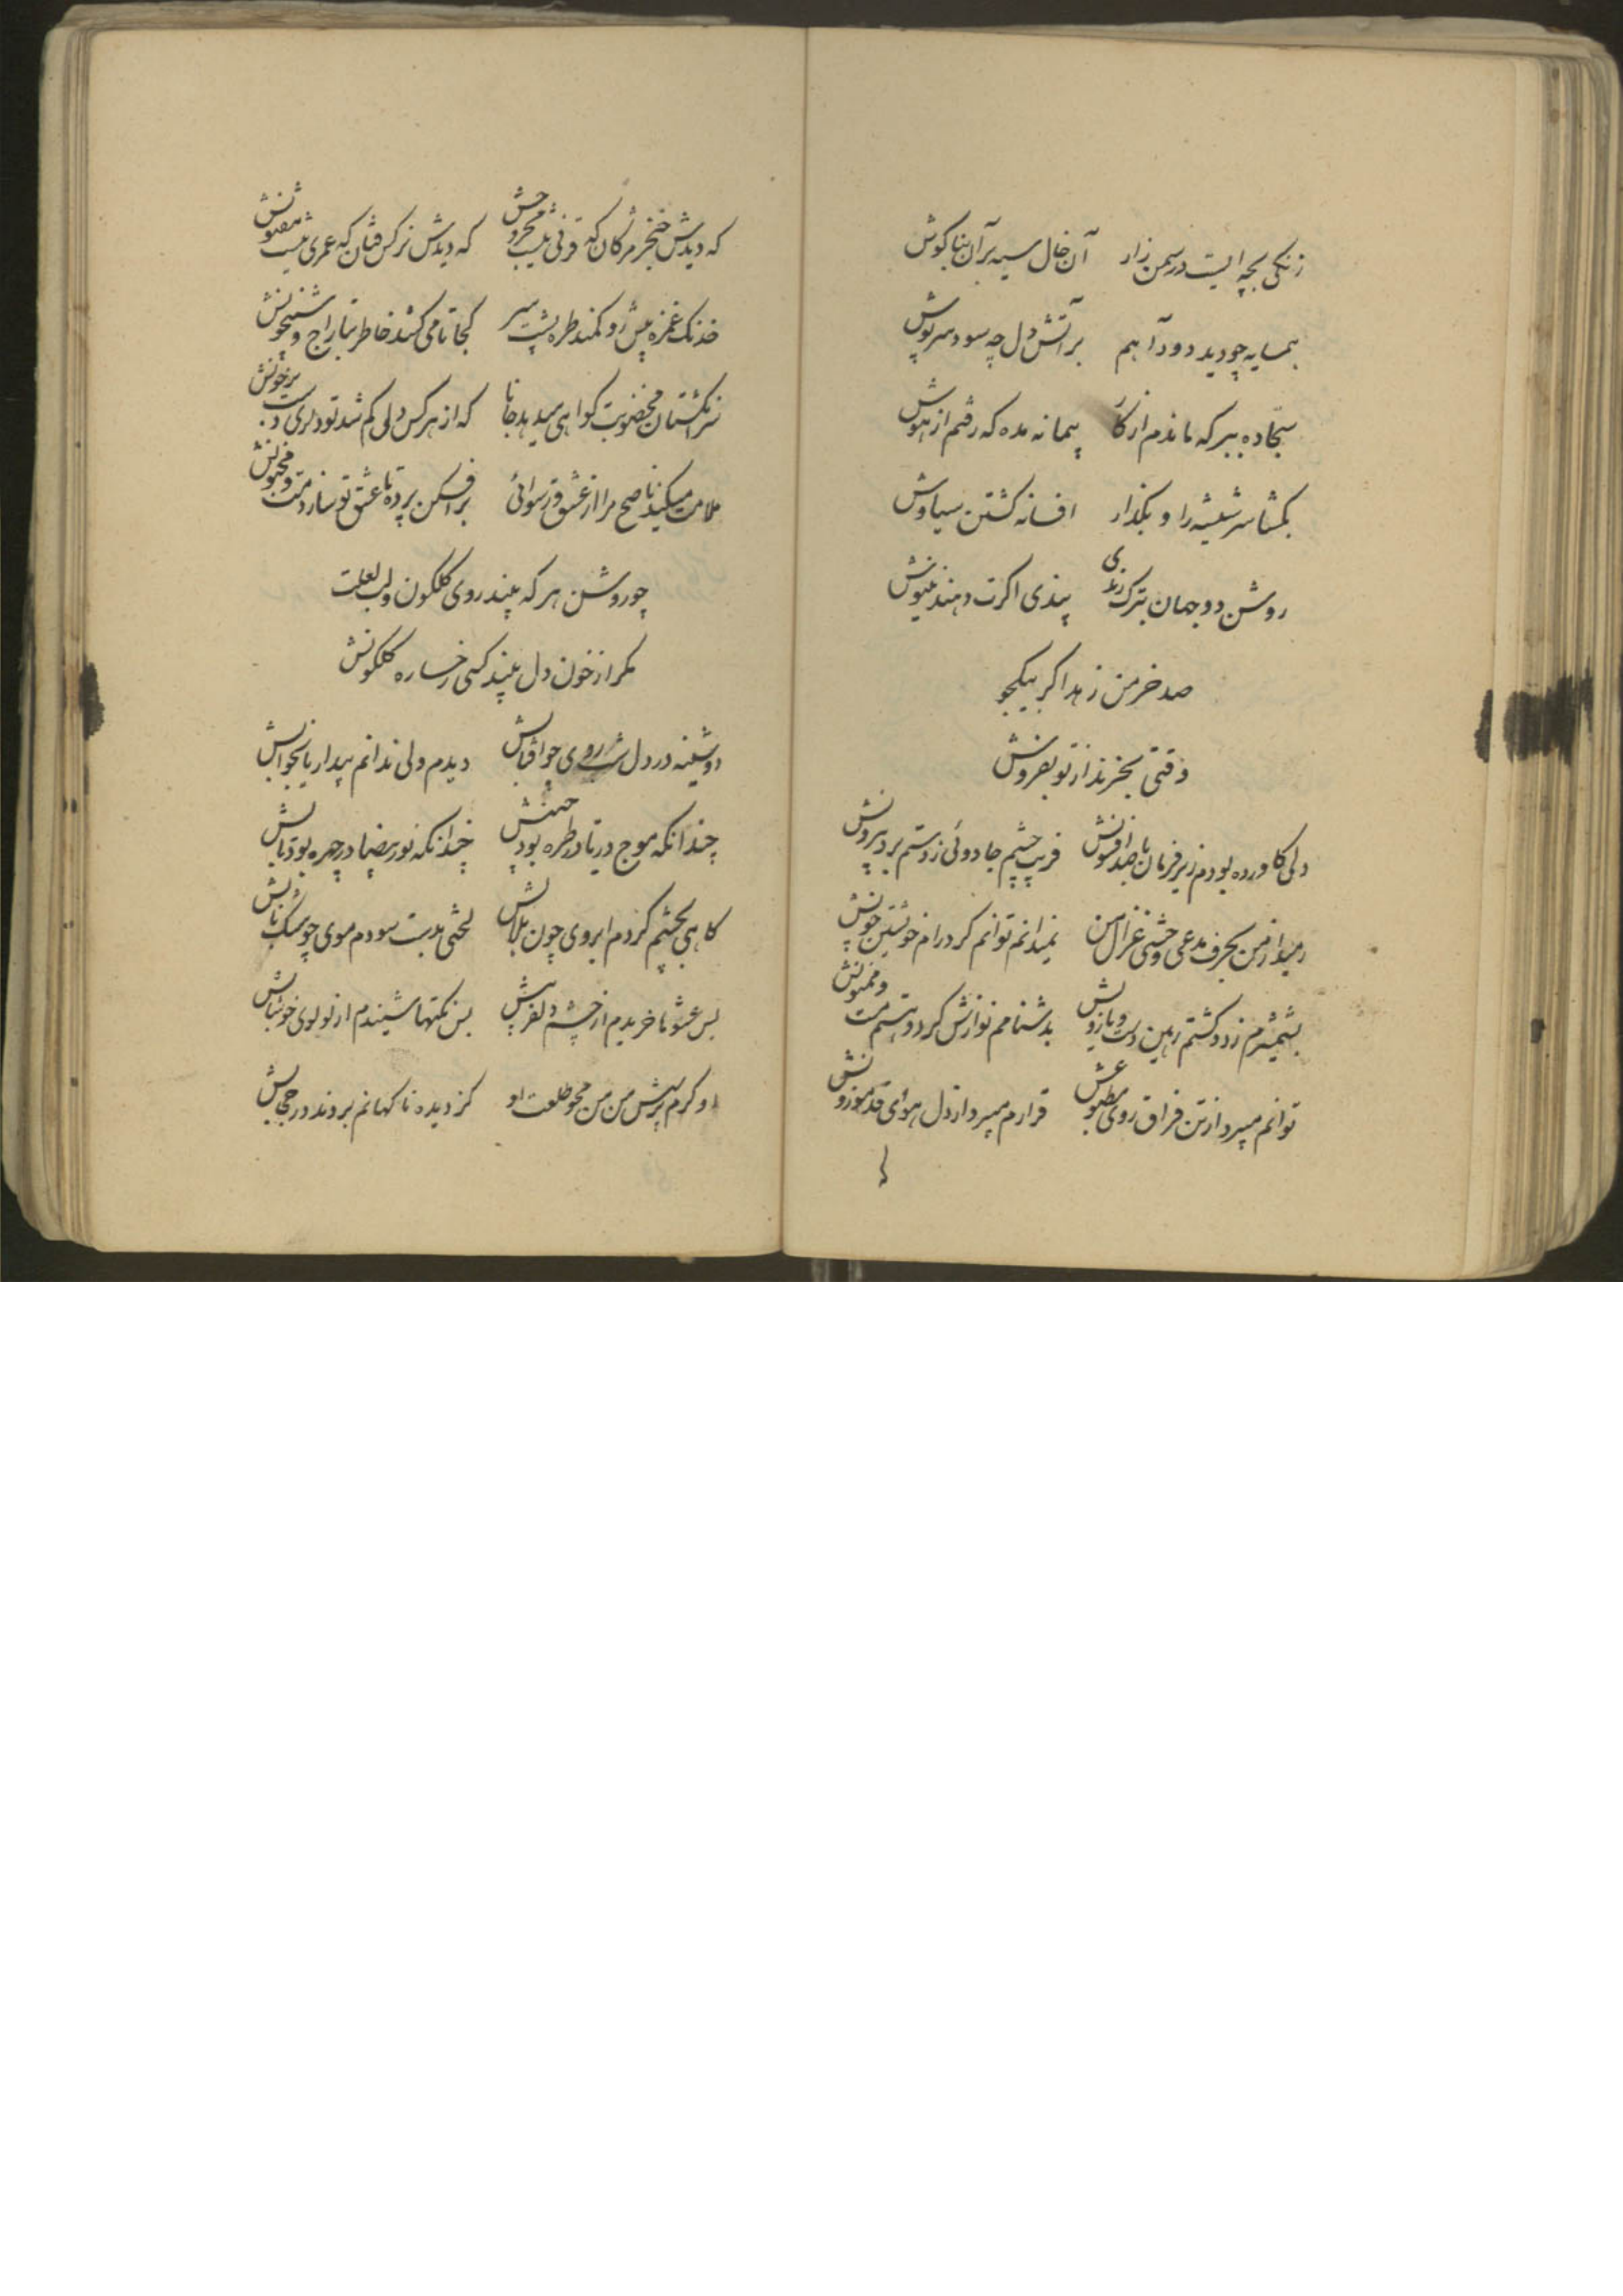 زنکی بچه ایست در سمن زار آن خال سیه بر آن بناکوش
همسایه چو دید دود آهم بر آتش دل چه سود سرپوش
سجاده ببر که ماندم از کار پیمانه مده که رفتم از هوش
بکشا سر شیشه را و بکذار افسانه کشتن سیاوش
روشن دو جهان بترک رندی پندی اکرت دهند بنیوش
صد خرمن زهد اکر بیکجو
وقتی بخرند از تو بفروش
دلی کاورده بودم زیر فرمان با صد افسونش فریب چشم جادوئی ز دستم برد بیرونش
رمید از من بحرف مدعی وحشی غزال من نمیدانم توانم کرد رام خویشتن چونش
بشمشیرم زد و کشتم رهین دست و بازویش بدشنامم نوازش کرد و هستم منت و ممنونش
توانم میبرد از تن فراق روی مطبوعش قرارم میبرد از دل هوای قد موزونش
که دیدش خنجر مژکان که قرنی نیست مجروحش که دیدش نرکس فتان که عمری نیست مفتونش
خدنک غمزه پیش رو کمند طره پشت سر کجا تا می کشد خاطر بتاراج و شبیخونش
سرانکشتان مخضوبت کواهی میدهد جانا که از هر کس دلی کم شد تو داری دست بر خونش
ملامت میکند ناصح مرا از عشق و رسوائی برافکن پرده تا عشق تو سازد مست و مجنونش
چو روشن هر که بیند روی کلکون و لب لعلت
مکر از خون دل بیند کسی رخساره کلکونش
دوشینه در دل شب روی چو آفتابش دیدم ولی ندانم بیدار یا بخوابش
چندانکه موج دریا در طره بود چینش چندانکه نور بیضا در چهره بود تابش
کاهی بچشم کردم ابروی چون هلالش لختی بدست سودم موی چو مشک نابش
بس عشوها خریدم از چشم دلفریبش بس نکتها شنیدم از لولوی خوشابش
او کرم پرسش من من محو طلعت او کز دیده ناکهانم بردند در حجابش